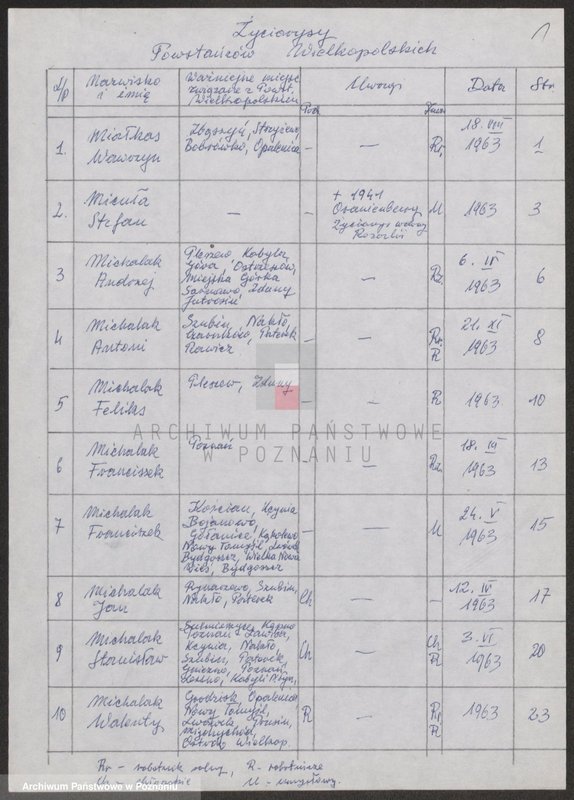 Życiorysy 1
Powstańców Wielkopolskich
L/p Nazwisko i imię Ważniejsze miejsc. związane z Powst. Wielkopolskim Uwagi Data Str
1. Miałkas Wawrzyn Zbąszyń, Strzyżewo Bobrówko, Opalenica – — Rr, 18. VIII 1963 1
2. Micuła Stefan — – + 1941 Oranienburg Życiorys według M 1963 3
3 Michalak Andrzej Pleszew, Kobyla Góra, Ostrzeszów, Miejska Górka Sarnowo, Zduny Jutrosin — 6. 1963 6
4 Michalak Antoni Szubin, Nakło, Rawicz – — Rr. R 21. XI 1963 8
5 Michalak Feliks Pleszew, Zduny – – R 1963. 10
6 Michalak Franciszek Poznań – — 18. 1963 13
7 Michalak Franciszek Kościan, Kcynia Bojanowo, Gołańcz, Nowy Tomyśl, Bydgoszcz, Wielka Nowa Wieś, Bydgoszcz – — M 24. V 1963 15
8 Michalak Jan Rynarzewo, Szubin, Nakło, Ch — — 12. IV 1963 17
9 Michalak Stanisław Kcynia, Nakło, Szubin, Gniezno, Poznań, Ch — Ch R 3. VI 1963 20
10 Michalak Walenty Grodzisk Opalenica Nowy Tomyśl, Lwówek, Międzychód, Ostrów Wielkop. R — Rr R 1963 23
Rr – robotnik rolny, R – robotnicze
Ch – chłopskie M – umysłowy.
ARCHIWUM PAŃSTWOWE
W POZNANIU
Archiwum Państwowe w Poznaniu